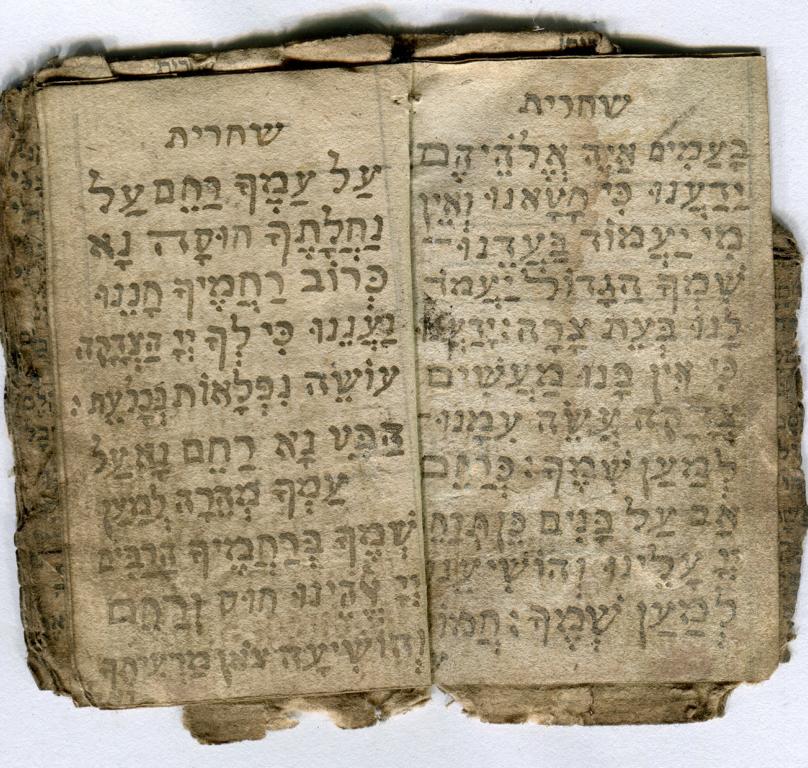 שחרית
בָּעַמִּים אַיֵּה אֱלֹהֵיהֶם
יָדַעְנוּ כִּי חָטָאנוּ וְאֵין
מִי יַעֲמוֹד בַּעֲדֵנוּ
שִׁמְךָ הַגָּדוֹל יַעֲמוֹד
לָנוּ בְּעֵת צָרָה: יָדַעְנוּ
כִּי אֵין בָּנוּ מַעֲשִׂים
צְדָקָה עֲשֵׂה עִמָּנוּ
לְמַעַן שְׁמֶךָ: כְּרַחֵם
אָב עַל בָּנִים כֵּן תְּרַחֵם
יְיָ עָלֵינוּ וְהוֹשִׁיעֵנוּ
לְמַעַן שְׁמֶךָ: חֲמוֹל
שחרית
עַל עַמֶּךָ רַחֵם עַל
נַחֲלָתֶךָ חוּסָה נָּא
כְּרוֹב רַחֲמֶיךָ חָנֵּנוּ
וַעֲנֵנוּ כִּי לְךָ יְיָ הַצְּדָקָה
עוֹשֵׂה נִפְלָאוֹת בְּכָל עֵת:
הַבֵּט נָא רַחֵם נָא עַל
עַמְּךָ מְהֵרָה לְמַעַן
שְׁמֶךָ בְּרַחֲמֶיךָ הָרַבִּים
יְיָ אֱהֵינוּ חוּס וְרַחֵם
וְהוֹשִׁיעָה צֹאן מַרְעִיתֶךָ